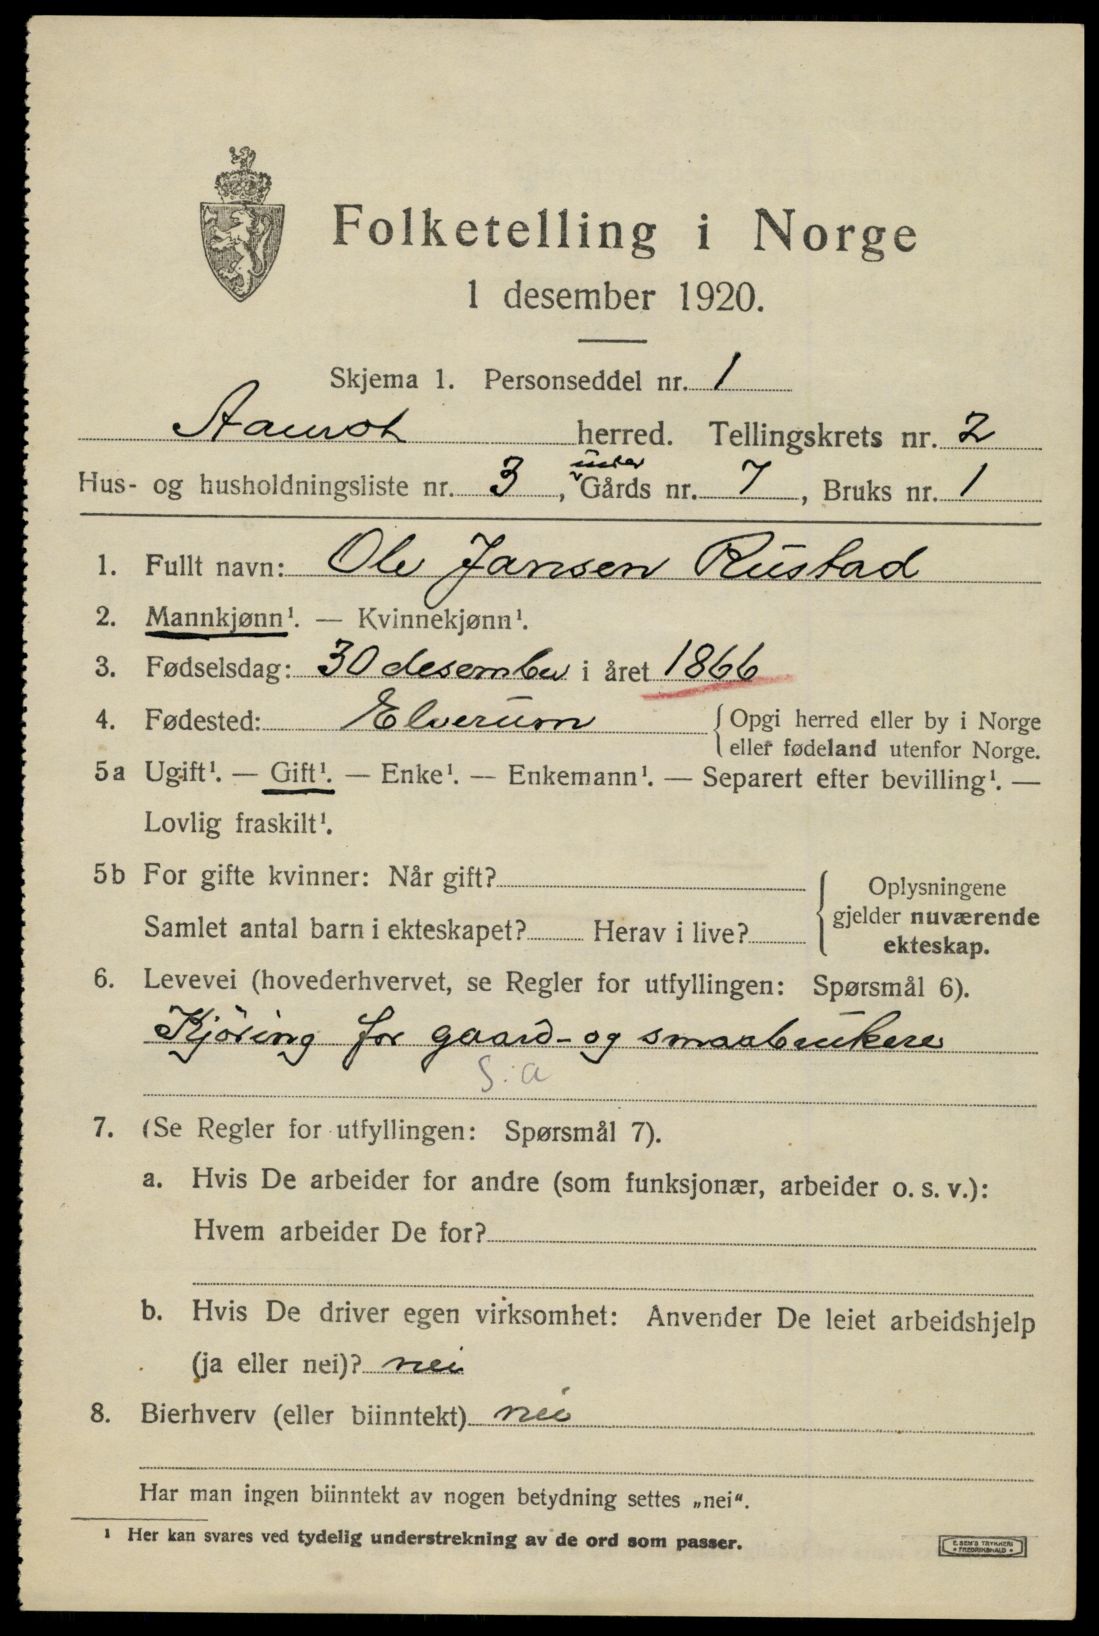 Folketelling i Norge
1 desember 1920.
Skjema 1. Personseddel nr. 1
Aamot herred. Tellingskrets nr. 2
under
Hus- og husholdningsliste nr. 3, Gårds nr. 7, Bruks nr. 1
1. Fullt navn: Ole Jansen Rustad
2. Mannkjønn¹. — Kvinnekjønn¹.
3. Fødselsdag: 30 desember i året 1866
4. Fødested: Elverum { Opgi herred eller by i Norge
eller fødeland utenfor Norge.
5a Ugift¹. — Gift¹. — Enke¹. — Enkemann¹. — Separert efter bevilling¹. —
Lovlig fraskilt¹.
5b For gifte kvinner: Når gift?
Samlet antal barn i ekteskapet? Herav i live?
Oplysningene
gjelder nuværende
ekteskap.
6. Levevei (hovederhvervet, se Regler for utfyllingen: Spørsmål 6).
Kjöring for gaard- og smaabrukere
S:a
7. (Se Regler for utfyllingen: Spørsmål 7).
a. Hvis De arbeider for andre (som funksjonær, arbeider o. s. v.):
Hvem arbeider De for?
b. Hvis De driver egen virksomhet: Anvender De leiet arbeidshjelp
(ja eller nei)? nei
8. Bierhverv (eller biinntekt) nei
Har man ingen biinntekt av nogen betydning settes „nei“.
¹ Her kan svares ved tydelig understrekning av de ord som passer.
E. SEM'S TRYKKERI
• FREDRIKSHALD •